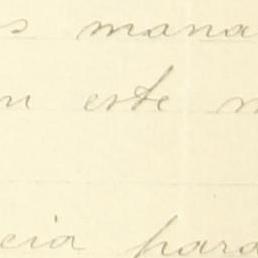 s mana
n este m
cia para